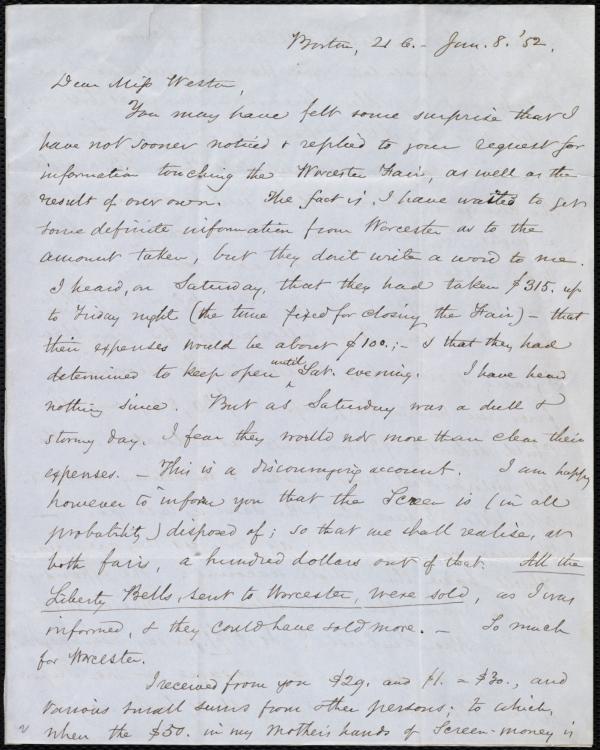 Boston, 21 C.- Jan. 8. '52.
Dear Miss Weston,
You may have felt some surprise that I
have not sooner noticed & replied to your request for
information touching the Worcester Fair, as well as the
result of our own. The fact is, I have waited to get
some definite information from Worcester as to the
amount taken, but they don't write a word to me.
I heard, on Saturday, that they had taken $315. up
to Friday night (the time fixed for closing the Fair) - that
their expenses would be about $100.; - & that they had
determined to keep open until Sat. evening. I have heard
nothing since. But as Saturday was a dull &
stormy day, I fear they would not more than clear their
expenses. - This is a discouraging account. I am happy
however to inform you that the Screen is (in all
probability) disposed of; so that we shall realise, at
both fairs, a hundred dollars out of that. All the
Liberty Bells, sent to Worcester, were sold, as I was
informed, & they could have sold more. - So much
for Worcester.
I received from you $29. and $1. = $30., and
various small sums from other persons; to which,
when the $50. in my Mother's hands of Screen-money is